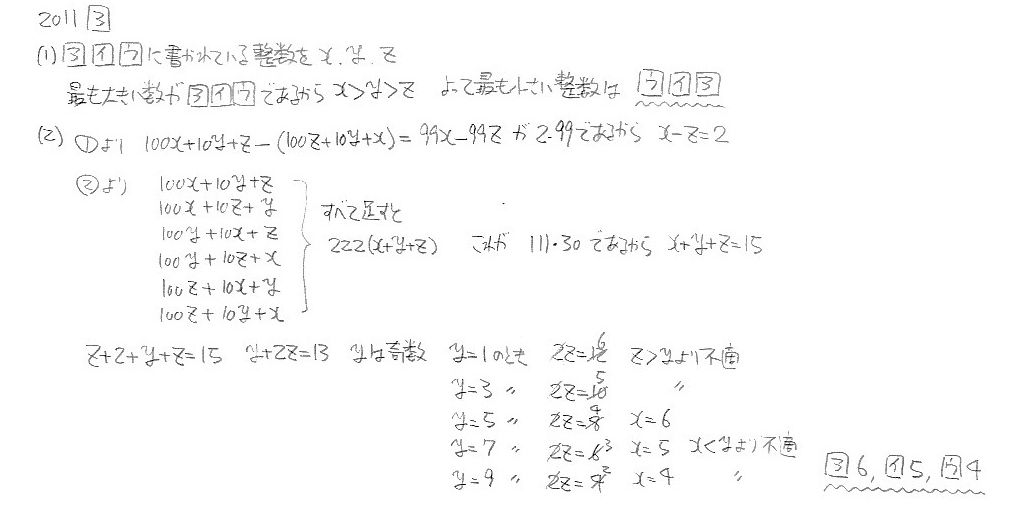 2011 ③
(1) ヨ イ ウ に書かれている整数を x, y, z
最も大きい数が ヨ イ ウ であるから x>y>z よって最も小さい整数は ウ イ ヨ
(2) ①より 100x+10y+z-(100z+10y+x)=99x-99z が 2・99であるから x-z=2
②より 100x+10y+z
100x+10z+y
100y+10x+z
100y+10z+x
100z+10x+y
100z+10y+x
すべて足すと
222(x+y+z) これが 111・30 であるから x+y+z=15
z+2+y+z=15 y+2z=13 yは奇数 y=1のとき 2z=12 6 z>yより不適
y=3 〃 2z=10 5 〃
y=5 〃 2z=8 4 x=6
y=7 〃 2z=6 3 x=5 x<yより不適
y=9 〃 2z=4 2 x=4 〃
ヨ6, イ5, ウ4